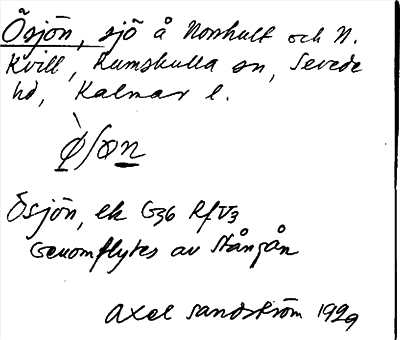 Ösjön, sjö å Norrhult och N.
Kvill, Rumskulla sn, Sevede
hd, Kalmar l.
Ösjön, ek G36 RfV3
Genomflytes av Stångån
Axel Sandström 1929